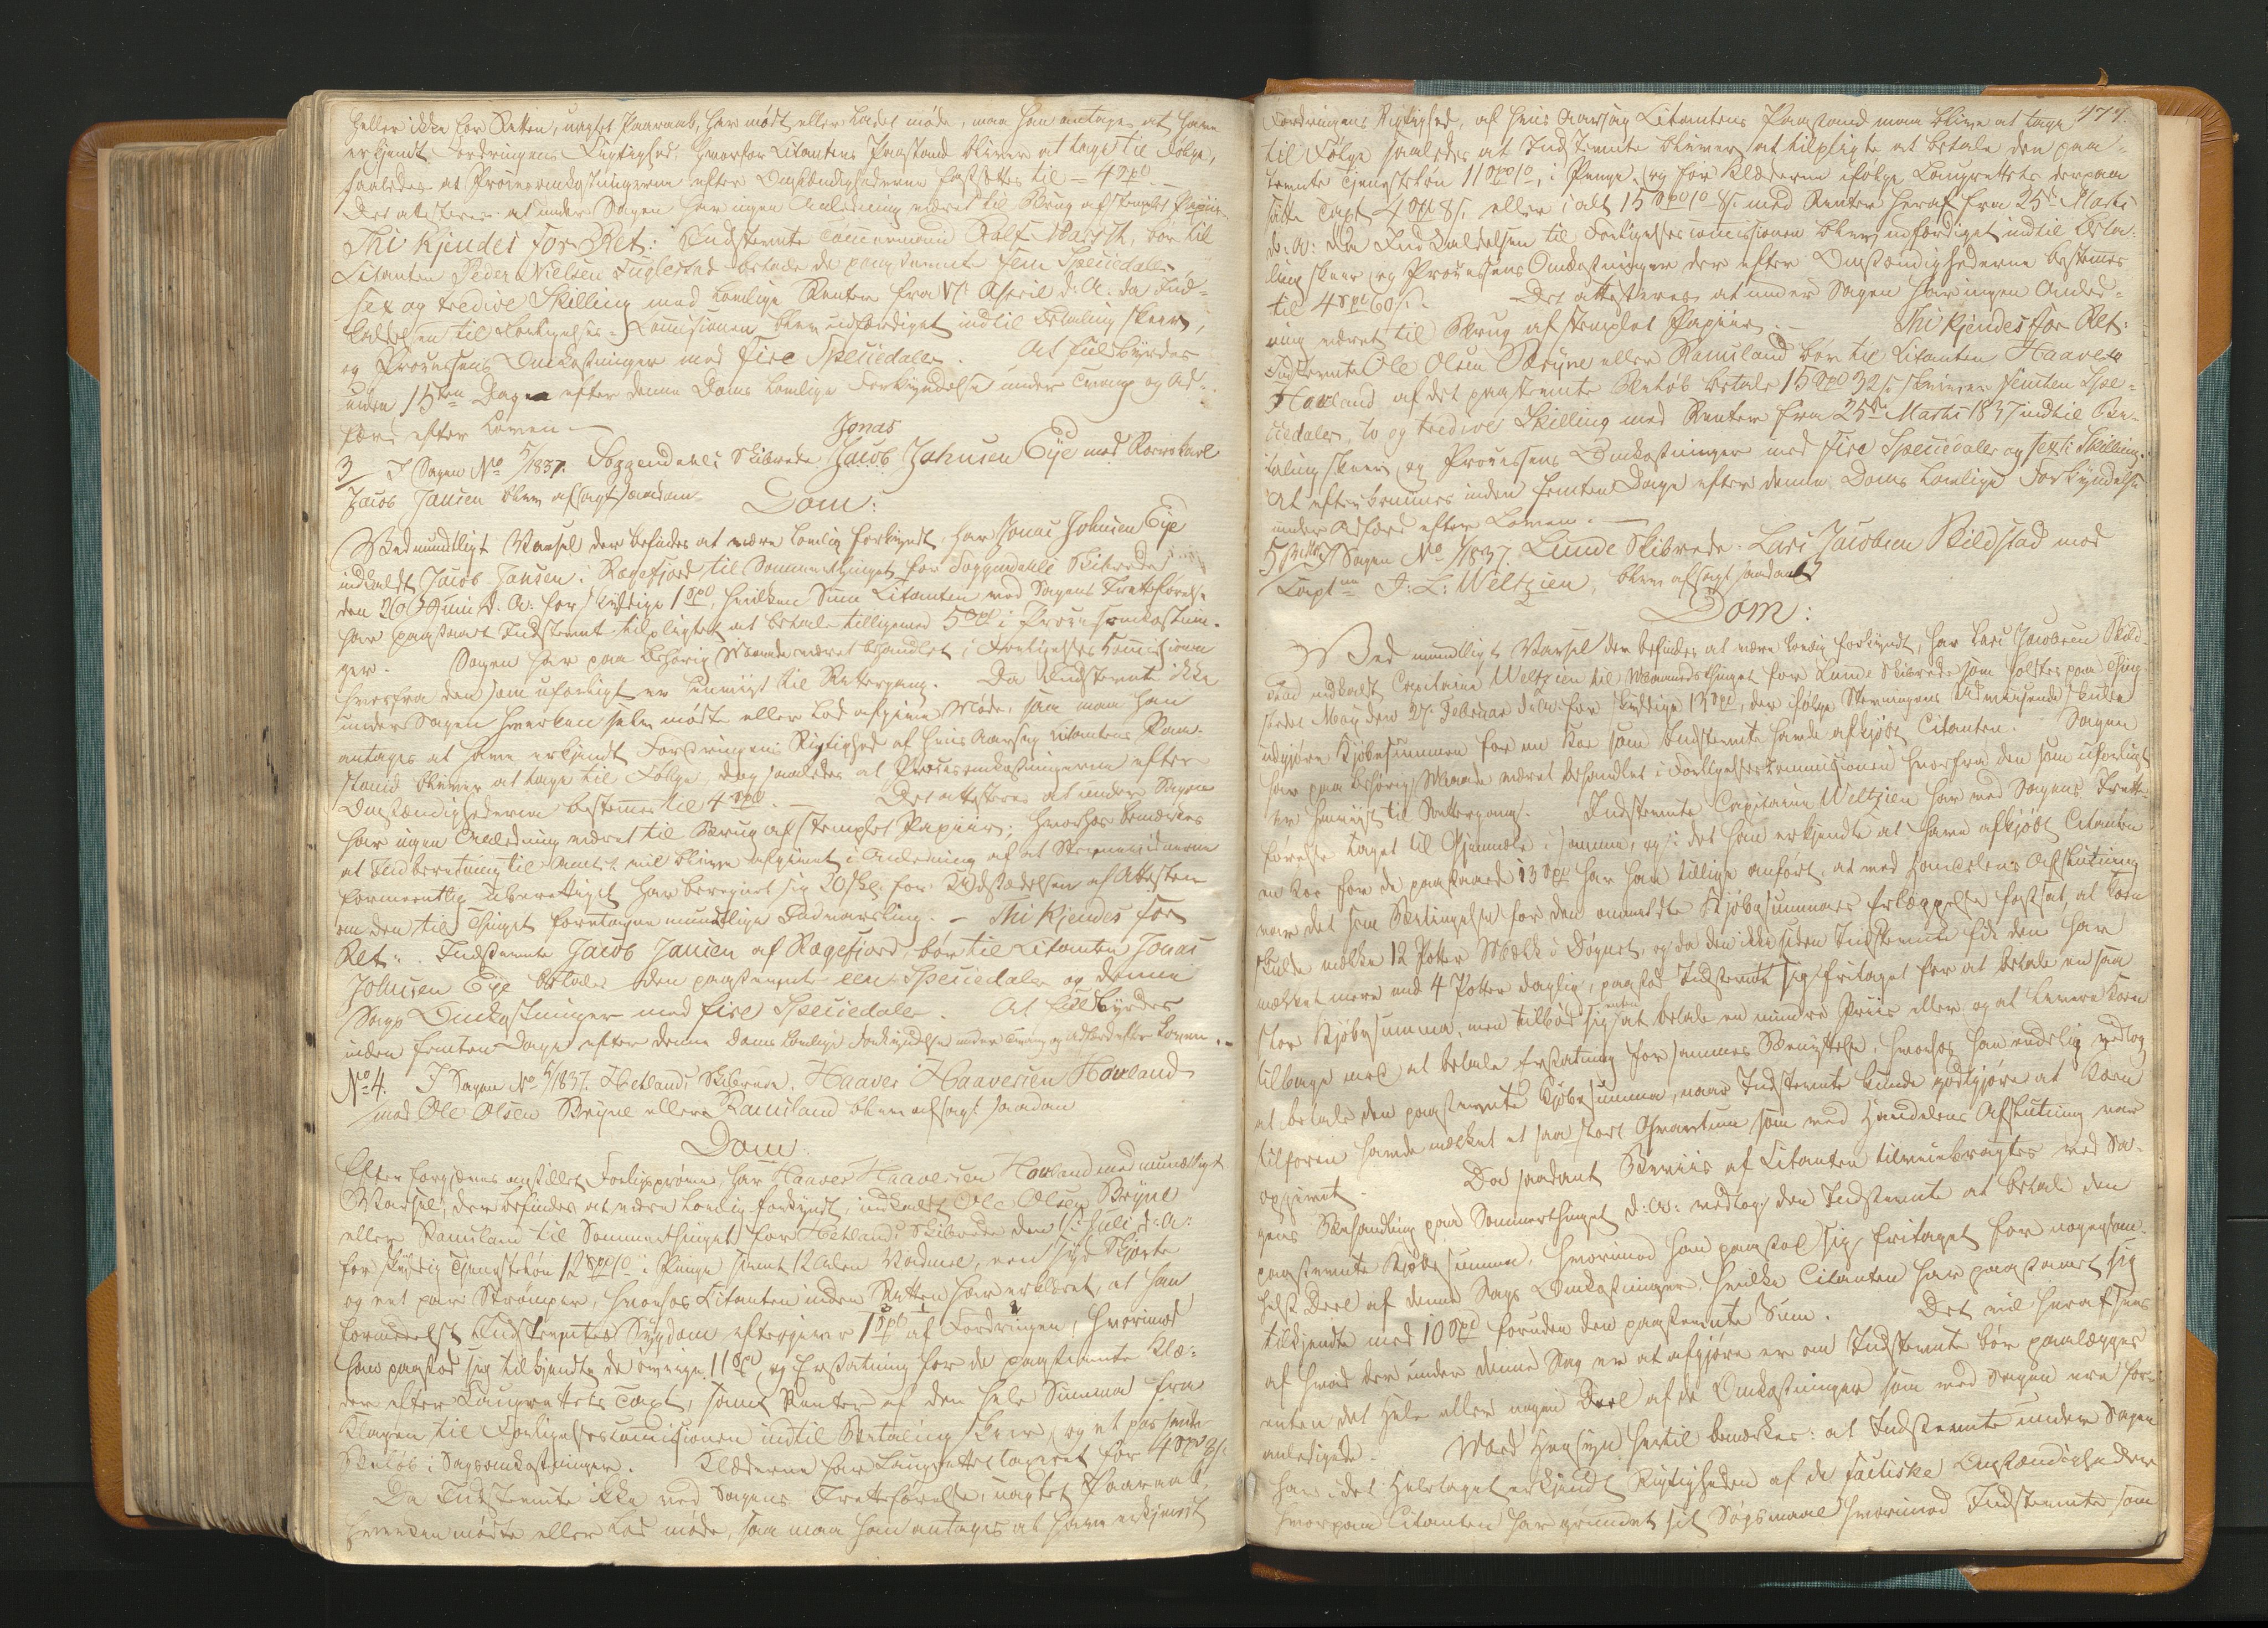 heller ikke for Retten, uagtet Paaraab, har mødt eller ladet møde, maa han antages at have
erkjendt Fordringens Rigtighed, hvorfor Citantens Paastand bliver at tage til Følge,
saaledes at Procesomkostningerne efter Omstændighederne fastsættes til - 4 Spd. -
Det atesteres at under Sagen har ingen Anledning været til Brug af stemplet Papiir.
Thi kjendes for Ret: Indstevnte bør til
Citanten Peder Nielsen Fuglestad betale de paastevnte fem Speciedaler
sex og tredive Skilling med lovlige Renter fra April d. A. da Ind-
kaldelsen til Forligelses-Comissionen blev udfærdiget indtil Betaling skeer,
og Processens Omkostninger med fire Speciedaler. At fuldbyrdes
inden 15ten Dage efter denne Doms lovlige Forkyndelse under Tvang og Ad-
færd efter Loven. -
Jonas
3/ I Sagen No 5/1837. Soggendahls Skibrede Jacob Johnsen Eye mod
Jacob Jansen blev afsagt saadan
Dom:
Ved mundtligt Varsel der befindes at være lovlig forkyndt, har Jonas Johnsen Eye
indkaldt Jacob Jansen i Rægefjord til Sommerthinget for Soggendahls Skibrede
den 20 Juni d. A. for skyldige 1 Spd, hvilken Sum Citanten ved Sagens Fretteførelse
har paastaaet Indstevnte tilpligtet at betale tilligemed 5 Spd i Procesomkostnin-
ger. Sagen har paa behørig Maade været behandlet i Forligelses Commissionen
hvorfra den som uforligt er henviist til Rettergang. Da Indstevnte ikke
under Sagen hverken selv mødte eller lod afgive Møde, saa maa han
antages at have erkjendt Fordringens Rigtighed af hvis Aarsag Citantens Paa-
stand bliver at tage til Følge, dog saaledes at Procesomkostningerne efter
Omstændighederne bestemes til 4 Spd. - Det attesteres at under Sagen
har ingen Anledning været til Brug af stemplet Papiir; hvorhos bemærkes
at Indberetning til Amtet vil blive afgivet i Anledning af at Stevnevidnerne
formeentlig uberettiget har beregnet sig 20 skl. for Udstædelsen af Attesten
om den til Thinget foretagne mundtlige Indvarsling. - Thi kjendes for
Ret: Indstevnte Jacob Jansen af Rægefjord, bør til Citanten Jonas
Johnsen Eye betale den paastevnte een Speciedaler og denne
Sags Omkostninger med fire Speciedaler. At fuldbyrdes
inden femten Dage efter denne Doms lovlige Forkyndelse under Tvang og Adfærd efter Loven. -
No 4. I Sagen No 6/1837. Hetlands Skibrede. Haaver Haaversen Hovland
mod Ole Olsen Bryne eller Ramsland blev afsagt saadan
Dom
Efter forgjæves anstillet Forligsprøve, har Haaver Haaversen Hovland med mundtligt
Varsel, der befindes at være lovlig forkyndt, indkaldt Ole Olsen Bryne
eller Ramsland til Sommerthinget for Hetlands Skibrede den 1 Juli d. A:
for skyldig Tjenesteløn 12 Spd i Penge samt 12 Alen Vadmel, een Skjorte
og eet par Strømper, hvorhos Citanten inden Retten har erklæret, at han
formedelst Indstevntes Sygdom eftergiver 1 Spd af Fordringen, hvorimod
han paastod sig tilkjendte de øvrige 11 Spd og Erstatning for de paastevnte Klæ-
der efter Laugrettets Taxt, samt Renter af den hele Summa fra
Klagen til Forligelsescomissionen indtil Betaling skeer, og et passende
Beløb i Sagsomkostninger. Klæderne har Laugrettet taxeret for 4 Spd 8 s.
Da Indstevnte ikke ved Sagens Fretteførelse, uagtet Paaraab,
hverken mødte eller lod møde, saa maa han antages at have erkjendt
477.
Fordringens Rigtighed, af hvis Aarsag Citantens Paastand maa blive at tage
til Følge saaledes at Indstevnte bliver at tilpligte at betale den paa-
stevnte Tjenesteløn 11 Spd, i Penge, og for Klæderne ifølge Laugrettets derpaa
satte Taxt 4 Spd 8 s. eller i alt 15 Spd 8 s. med Renter heraf fra 25de Marts
d. A: da Indkaldelsen til Forligelsescomissionen blev udfærdiget indtil Beta-
ling skeer, og Processens Omkostninger der efter Omstændighederne bestemes
til 4 Spd 60 s. - Det attesteres at under Sagen har ingen Anled-
ning været til Brug af stemplet Papiir. - Thi kjendes for Ret:
Indstevnte Ole Olsen Bryne eller Ramsland bør til Citanten Haaver
Hovland af det paastevnte Beløb betale 15 Spd 32 s. skriver femten Spe-
ciedaler, to og tredive Skilling med Renter fra 25de Marts 1837 indtil Be-
taling skeer, og Processens Omkostninger med fire Speciedaler og sexti Skilling.
At efterkommes inden femten Dage efter denne Doms lovlige Forkyndelse
under Adfærd efter Loven. -
I Sagen No 1/1837. Lunde Skibrede. Lars Jacobsen Skildstad mod
Captn J. L. Weltzien, blev afsagt saadan
Dom:
Ved mundtligt Varsel der befindes at være lovlig forkyndt, har Lars Jacobsen Skild-
stad indkaldt Capitaine Weltzien til Maanedsthinget for Lunde Skibrede som holdtes paa Thing-
stedet Moy den 27 Februar d. A. for skyldige 13 Spd, der ifølge Stevningens Udvisende skulde
udgjøre Kjøbesummen for en Koe som Indstevnte havde afkjøbt Citanten. Sagen
har paa behørig Maade været behandlet i Forligelsescommissionen hvorfra den som uforligt
er henviist til Rettergang. Indstevnte Capitaine Weltzien har ved Sagens Frette-
førelse taget til Gjenmæle i samme, og i det han erkjendte at have afkjøbt Citanten
en Koe for de paastaaede 13 Spd har han tillige anført, at ved Handelens Afslutning
var det som Betingelse for den anmeldte Kjøbesummas Erlæggelse fastsat, at Koen
skulde malke 12 Potter Mælk i Døgnet, og da den ikke siden Indstevnte fik den har
malket mere end 4 Potter daglig, paastod Indstevnte sig fritaget for at betale en saa
stor Kjøbesumma, men tilbød sig enten at betale en mindre Priis eller og at levere Koen
tilbage med at betale Erstatning for sammes Benyttelse, hvorhos han endelig vedtog
at betale den paastevnte Kjøbesumma, naar Indstevnte kunde godtgjøre at Koen
tilforn havde malket et saa stort Qvantum som ved Handelens Afslutning var
opgivet. Da saadant Beviis af Citanten tilveiebragtes ved Sa-
gens Behandling paa Sommerthinget d. A: vedtog den Indstevnte at betale den
paastevnte Kjøbesumma, hvorimod han paastod sig fritaget for nogensom-
helst Deel af denne Sags Omkostninger, hvilke Citanten har paastaaet sig
tilkjendte med 10 Spd foruden den paastevnte Sum. Det vil heraf sees
af hvad der under denne Sag er at afgjøre er om Indstevnte bør paalægges
enten det Hele eller nogen Deel af de Omkostninger som ved Sagen ere for-
anledigede. Med Hensyn hertil bemærkes: at Indstevnte under Sagen
har i det Heletaget erkjendt Rigtigheden af de factiske Omstændigheder
hvorpaa Citanten har grundet sit Søgsmaal hvorimod Indstevnte, som